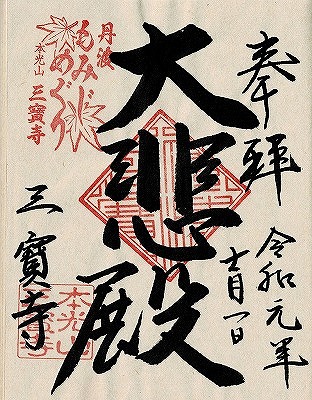 奉拝
令和元年
十一月一日
大悲殿
丹波
もみじ
めぐり
本光山
三寶寺
三寶寺
本光山
三寶寺